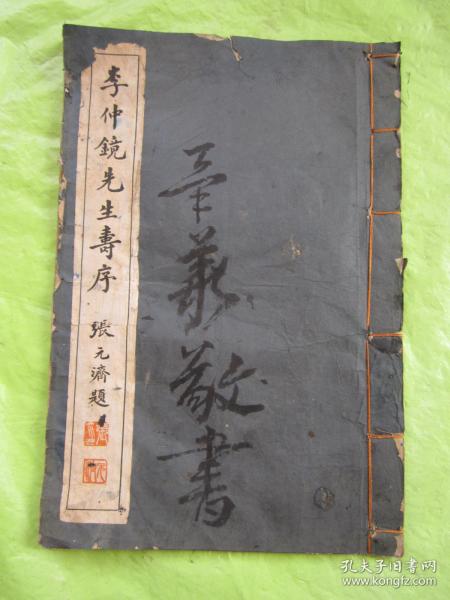 李仲鏡先生壽序
張元濟題
敬書
孔夫子旧书网
www.kongfz.com